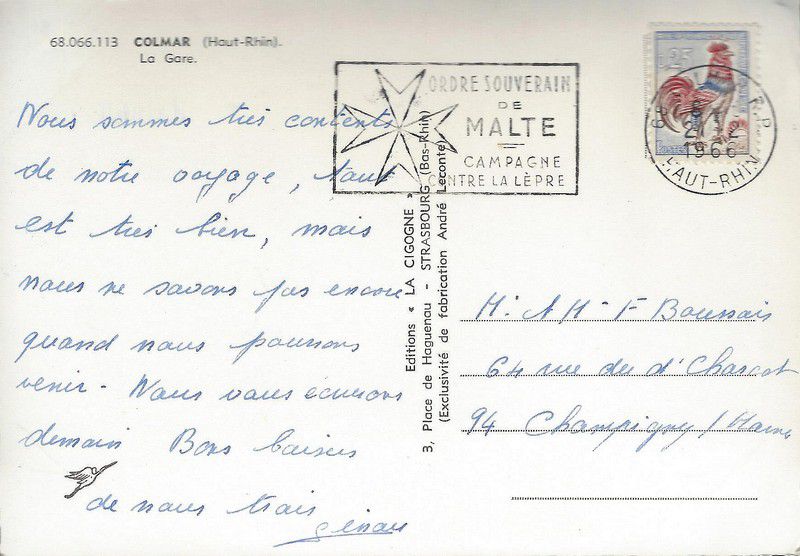 68.066.113 COLMAR (Haut-Rhin).
La Gare.
Nous sommes très contents
de notre voyage, tout
est très bien, mais
nous ne savons pas encore
quand nous pourrons
venir - Nous vous écrirons
demain Bons baisers
de nous trois
ORDRE SOUVERAIN
DE
MALTE
CAMPAGNE
CONTRE LA LÈPRE
0,25
POSTES
1966
HAUT-RHIN
Editions « LA CIGOGNE »
3, Place de Haguenau - STRASBOURG (Bas-Rhin)
(Exclusivité de fabrication André Leconte)
64 rue du d' Charcot
94 Champigny / Marne